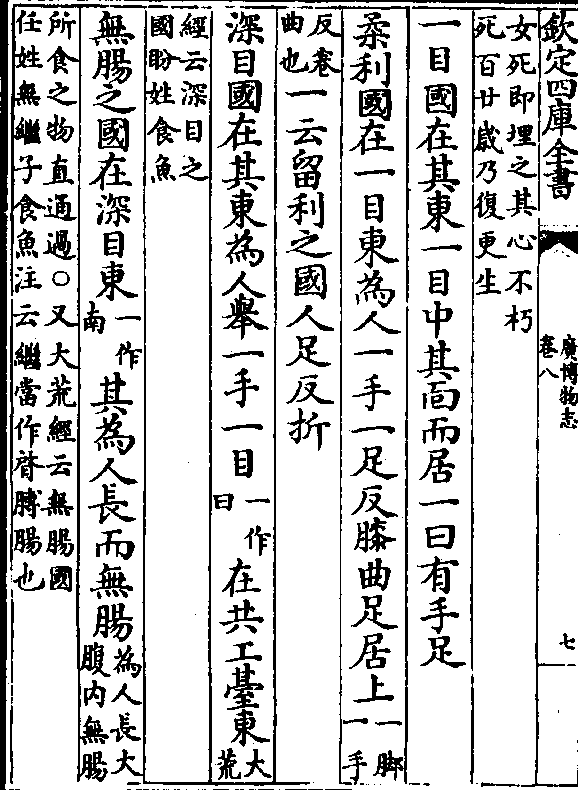 欽定四庫全書
廣博物志
卷八
七
女死即埋之其心不朽
死百廿歲乃復更生
一目國在其東一目中其靣而居一曰有手足
柔利國在一目東為人一手一足反膝曲足居上一脚一手
反卷曲也一云留利之國人足反折
深目國在其東為人舉一手一目一作曰在共工臺東大荒
經云深目之
國盼姓食魚
無腸之國在深目東一作南其為人長而無腸為人長大腹内無腸
所食之物直通過○又大荒經云無腸國
任姓無繼子食魚注云繼當作䏿膞腸也